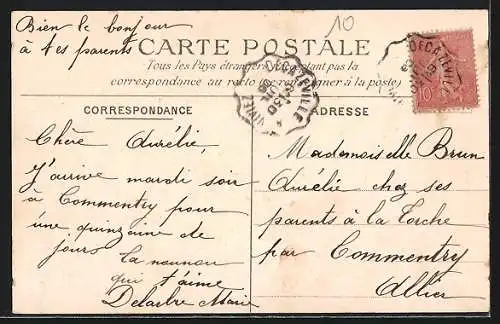 Bien le bonjour
à tes parents
10
CARTE POSTALE
Tous les Pays étrangers n'acceptant pas la
correspondance au recto (se renseigner à la poste)
DECAZEVILLE
DECAZEVILLE
10
CORRESPONDANCE
ADRESSE
Chère Aurélie,
J'arrive mardi soir
à Commentry pour
une quinzaine de
jours
ta
qui t'aime
Delarbre Marie
Mademoiselle Brun
Aurélie chez ses
parents à la Torche
par Commentry
Allier